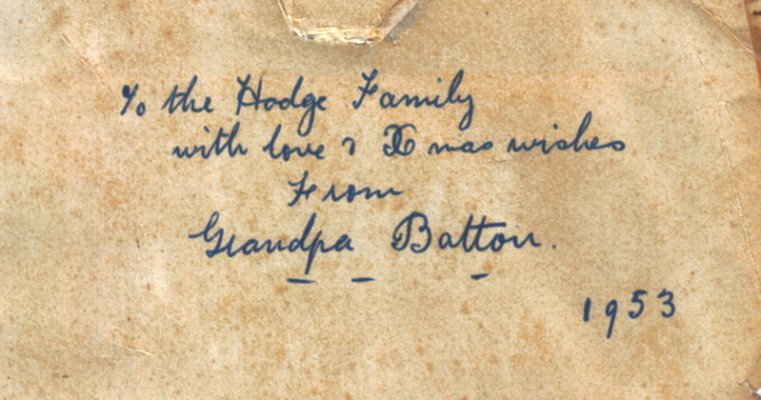 To the Hodge Family
with love & Xmas wishes
From
Grandpa Batton.
1953